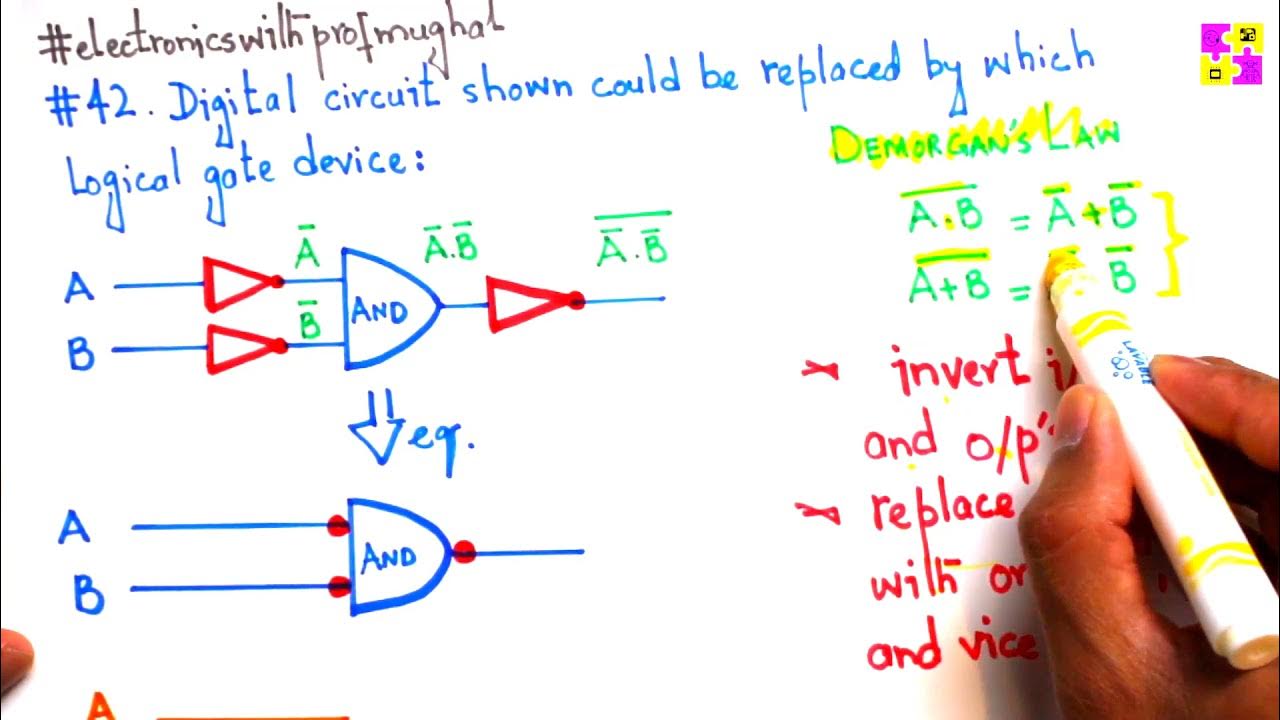 #electronicswithprofmughal
#42. Digital circuit shown could be replaced by which
Logical gate device:
DEMORGAN'S LAW
A̅.̅B̅ = A̅ + B̅
A̅+̅B̅ = B̅
A
B
A̅
B̅
AND
A̅.B̅
\overline{A̅.B̅}
eq.
A
B
AND
A
× invert
and o/p'
× replace
with or
and vice
LAVABLE